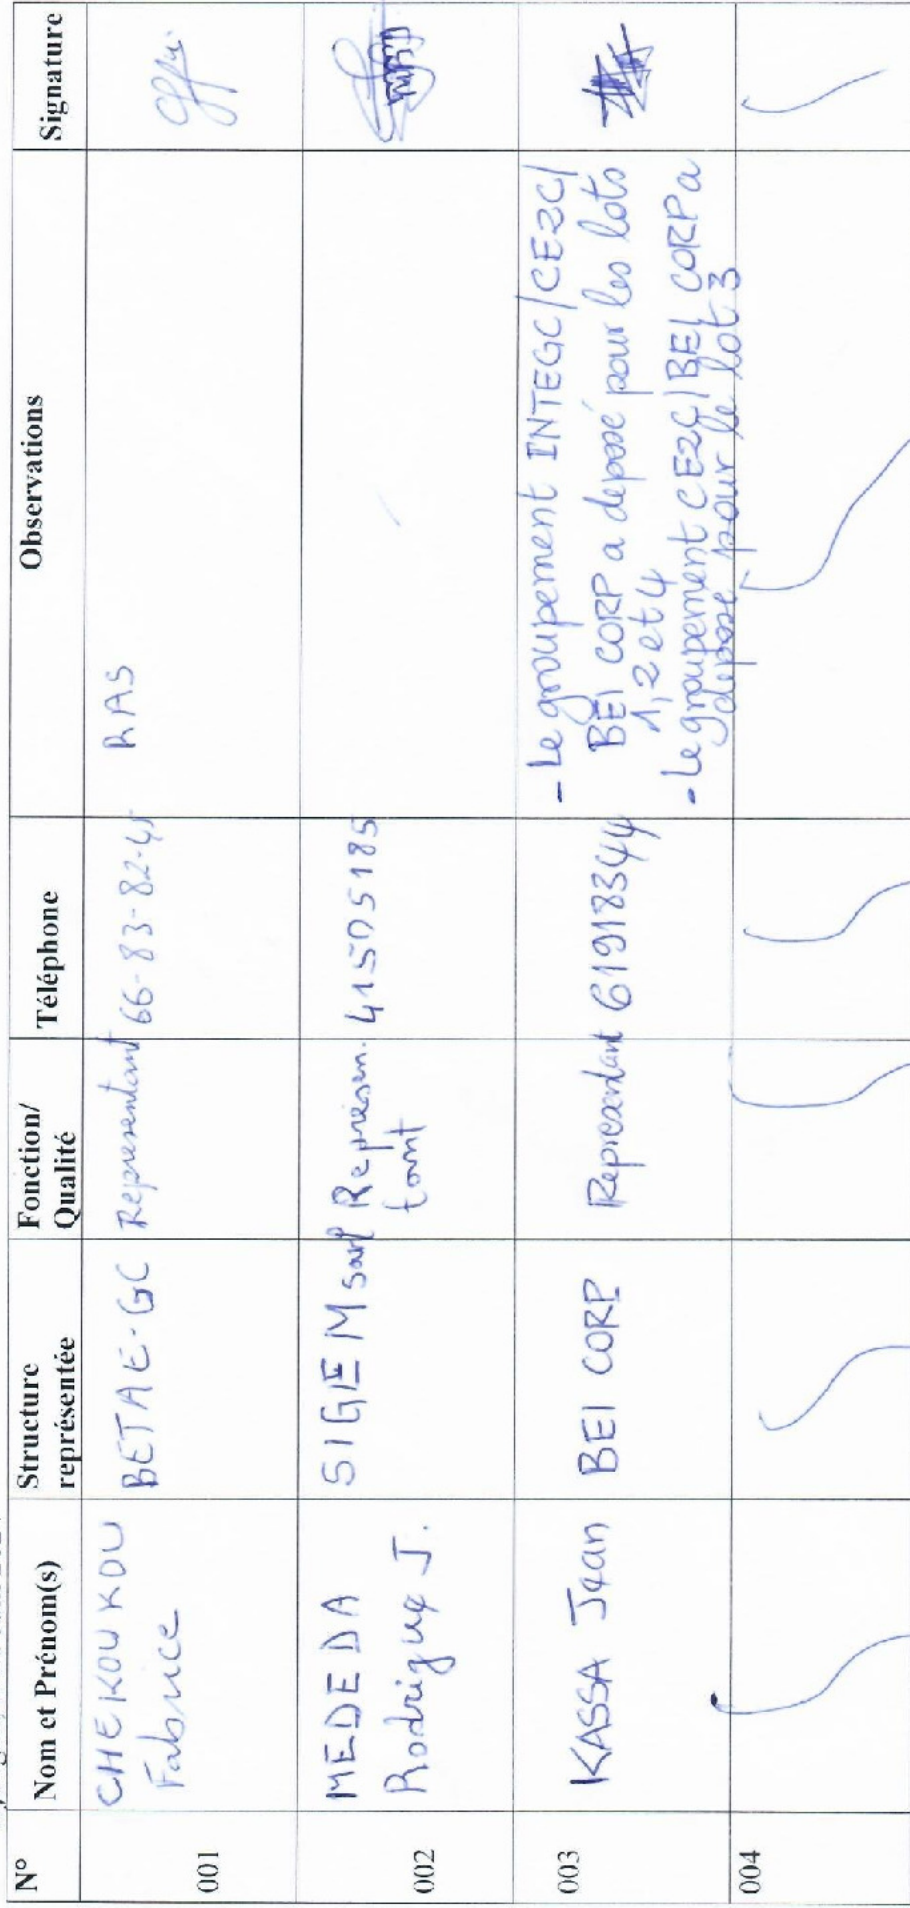 N°
Nom et Prénom(s)
Structure
représentée
Fonction/
Qualité
Téléphone
Observations
Signature
001
CHEKOUKOU
Fabrice
BETAE-GC
Representant
66-83-82-45
RAS
002
MEDEDA
Rodrigue J.
SIGEM sarl
Représen.
tant
41505185
003
KASSA Jean
BEI CORP
Representant
61918344
- Le groupement INTEGC/CE2C/
BEI CORP a deposé pour les lots
1, 2 et 4
- Le groupement CE2C/BEI CORP a
deposé pour le lot 3
004